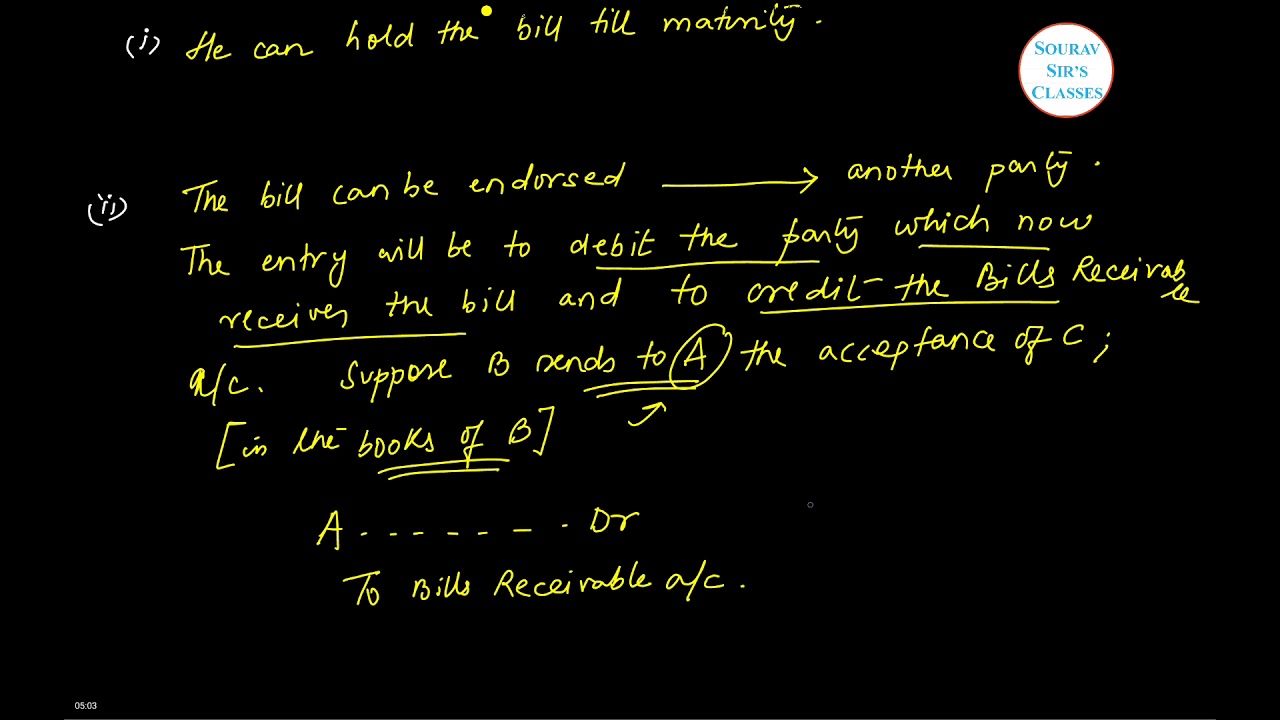 (i) He can hold the bill till maturity.
SOURAV
SIR'S
CLASSES
(ii) The bill can be endorsed → another party.
The entry will be to debit the party which now
receives the bill and to credit the Bills Receivable
a/c. Suppose B sends to A the acceptance of C;
[in the books of B]
A . - - - - - - . Dr
To Bills Receivable a/c.
05:03